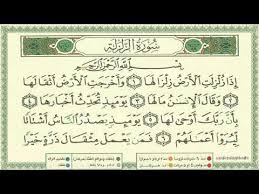 سُورَةُ الزَّلْزَلَةِ
بِسْمِ ٱللَّهِ ٱلرَّحْمَٰنِ ٱلرَّحِيمِ
إِذَا زُلْزِلَتِ ٱلْأَرْضُ زِلْزَالَهَا ١ وَأَخْرَجَتِ ٱلْأَرْضُ أَثْقَالَهَا
٢ وَقَالَ ٱلْإِنسَٰنُ مَا لَهَا ٣ يَوْمَئِذٍ تُحَدِّثُ أَخْبَارَهَا
٤ بِأَنَّ رَبَّكَ أَوْحَىٰ لَهَا ٥ يَوْمَئِذٍ يَصْدُرُ ٱلنَّاسُ أَشْتَاتًا
لِّيُرَوْا۟ أَعْمَٰلَهُمْ ٦ فَمَن يَعْمَلْ مِثْقَالَ ذَرَّةٍ خَيْرًا